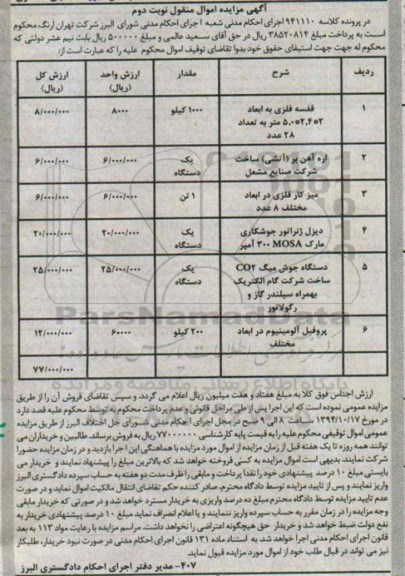 آگهی مزایده اموال منقول نوبت دوم
در پرونده کلاسه ۹۴۱۱۱۰ اجرای احکام مدنی شعبه ۱ اجرای احکام مدنی شورای البرز شرکت تهران ارنگ محکوم
است به پرداخت مبلغ ۳۸۵۲۰۸۱۴ ریال در حق آقای سعید عالمی و مبلغ ۵۰۰۰۰۰ ریال بابت نیم عشر دولتی که
محکوم له جهت استیفای حقوق خود بدوا تقاضای توقیف اموال محکوم علیه را که عبارت است از:
ردیف شرح مقدار ارزش واحد (ریال) ارزش کل (ریال)
۱ قفسه فلزی به ابعاد ۲*۲,۴*۵,۰ متر به تعداد ۲۸ عدد ۱۰۰۰ کیلو ۸۰۰۰ ۸/۰۰۰/۰۰۰
۲ اره آهن بر (آتشی) ساخت شرکت صنایع مشعل یک دستگاه ۶/۰۰۰/۰۰۰ ۶/۰۰۰/۰۰۰
۳ میز کار فلزی در ابعاد مختلف ۸ عدد ۱ تن ۶/۰۰۰/۰۰۰ ۶/۰۰۰/۰۰۰
۴ دیزل ژنراتور جوشکاری مارک MOSA ۳۰۰ آمپر یک دستگاه ۲۰/۰۰۰/۰۰۰ ۲۰/۰۰۰/۰۰۰
۵ دستگاه جوش میگ CO۲ ساخت شرکت گام الکتریک بهمراه سیلندر گاز و رگولاتور یک دستگاه ۲۵/۰۰۰/۰۰۰ ۲۵/۰۰۰/۰۰۰
۶ پروفیل آلومینیوم در ابعاد مختلف ۲۰۰ کیلو ۶۰۰۰۰ ۱۲/۰۰۰/۰۰۰
۷۷/۰۰۰/۰۰۰
ParsNamadData
پایگاه اطلاع رسانی مناقصه و مزایده
ارزش اجناس فوق کلا به مبلغ هفتاد و هفت میلیون ریال اعلام می گردد و سپس تقاضای فروش آن را از طریق
مزایده عمومی نموده است که این اجرا پس از طی مراحل قانونی و عدم پرداخت محکوم به توسط محکوم علیه قصد دارد
در مورخ ۱۳۹۴/۱۰/۱۷ ساعت ۸ الی ۹ صبح در محل اجرای احکام مدنی شورای حل اختلاف البرز از طریق مزایده
عمومی اموال توقیفی محکوم علیه را به قیمت پایه کارشناسی ۷۷۰۰۰۰۰۰ ریال به فروش برساند. طالبین و خریداران می
توانند همه روزه تا یک هفته قبل از زمان مزایده از اموال مورد مزایده با هماهنگی این اجرا بازدید و در زمان مزایده حضورا
شرکت نمایند. بدیهی است اموال مزایده به کسی فروخته خواهد شد که بالاترین مبلغ را پیشنهاد نمایند و خریدار می
بایستی مبلغ ۱۰ درصد پیشنهادی خود را نقدا پرداخت و مابقی را ظرف مدت دو هفته به حساب سپرده دادگستری البرز
واریز نمایند و پس از تایید مزایده توسط دادگاه محترم، صادر کننده حکم تقاضای انتقال مالکیت اموال نماید و در صورت
عدم تایید مزایده توسط دادگاه محترم مبلغ ده درصد واریزی به خریدار مسترد خواهد شد و درصورتی که خریدار مابقی
وجه مزایده را در زمان مقرر به حساب سپرده واریز ننمایند و یا اعلام انصراف نماید مبلغ ۱۰ درصد پیشنهادی خریدار به
نفع دولت ضبط خواهد شد و خریدار حق هیچگونه اعتراضی را نخواهد داشت. مراسم مزایده با رعایت مواد ۱۱۳ به بعد
قانون اجرای احکام مدنی اجرا خواهد شد. به استناد ماده ۱۳۱ قانون اجرای احکام مدنی در صورت نبود خریدار، طلبکار
نیز می تواند در قبال طلب خود از اموال مورد مزایده قبول نماید.
۴۰۷- مدیر دفتر اجرای احکام دادگستری البرز